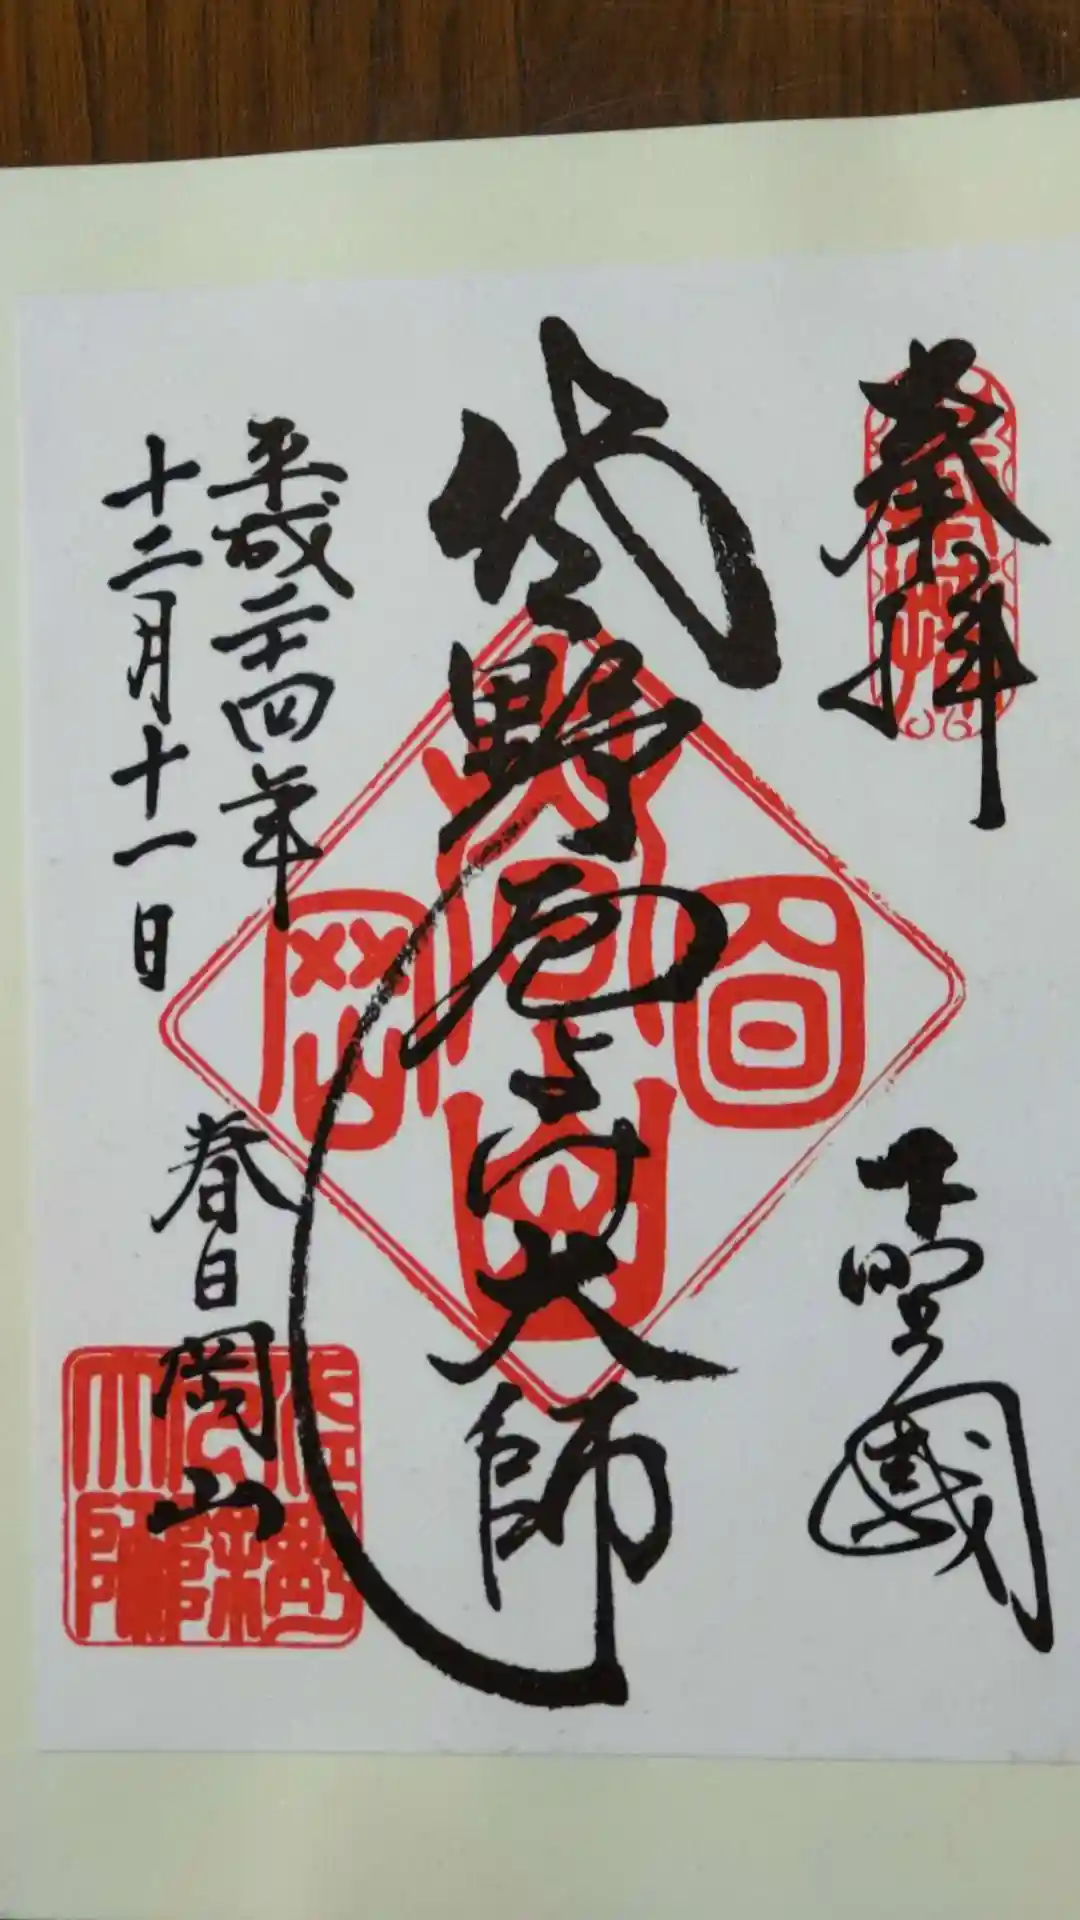 奉拝
下野國
佐野厄よけ大師
平成二十四年
十二月十一日
春日岡山